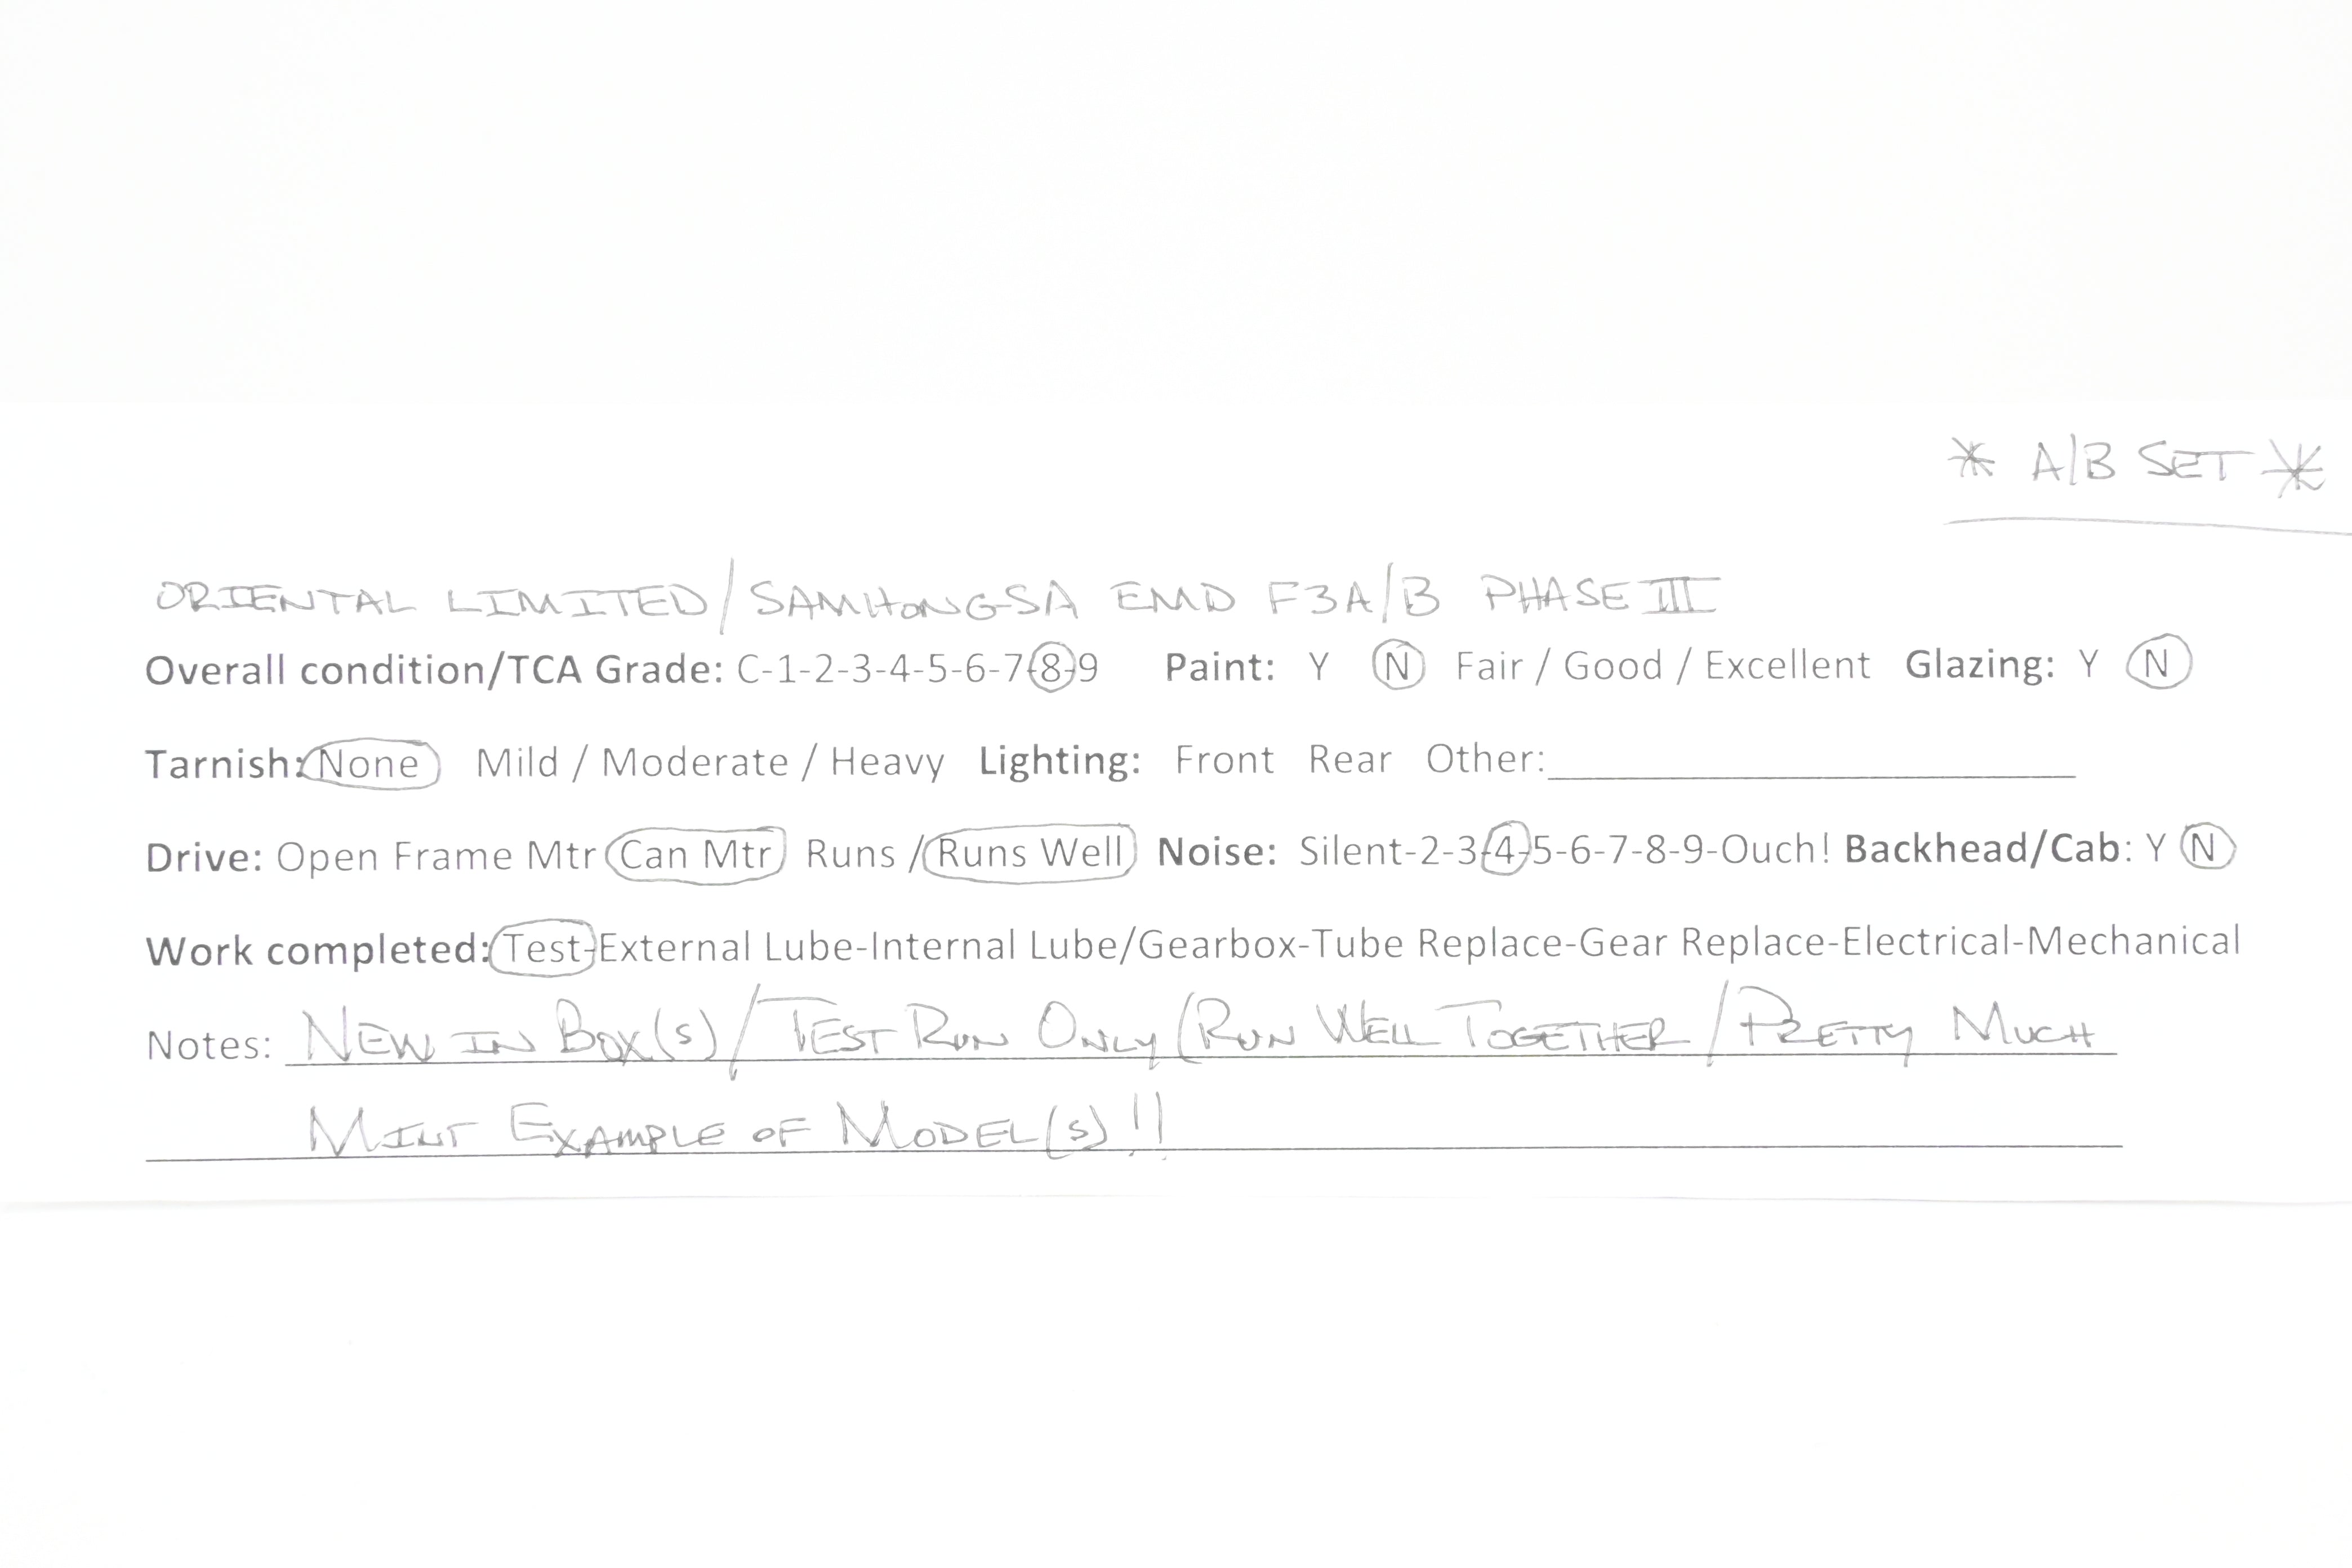 * A/B SET *
ORIENTAL LIMITED/SAMHONGSA EMD F3A/B PHASE III
Overall condition/TCA Grade: C-1-2-3-4-5-6-7-8-9 Paint: Y N Fair / Good / Excellent Glazing: Y N
Tarnish: None Mild / Moderate / Heavy Lighting: Front Rear Other:
Drive: Open Frame Mtr Can Mtr Runs / Runs Well Noise: Silent-2-3-4-5-6-7-8-9-Ouch! Backhead/Cab: Y N
Work completed: Test-External Lube-Internal Lube/Gearbox-Tube Replace-Gear Replace-Electrical-Mechanical
Notes: NEW IN BOX(S)/TEST RUN ONLY(RUN WELL TOGETHER/PRETTY MUCH
MINT EXAMPLE OF MODEL(S)!!